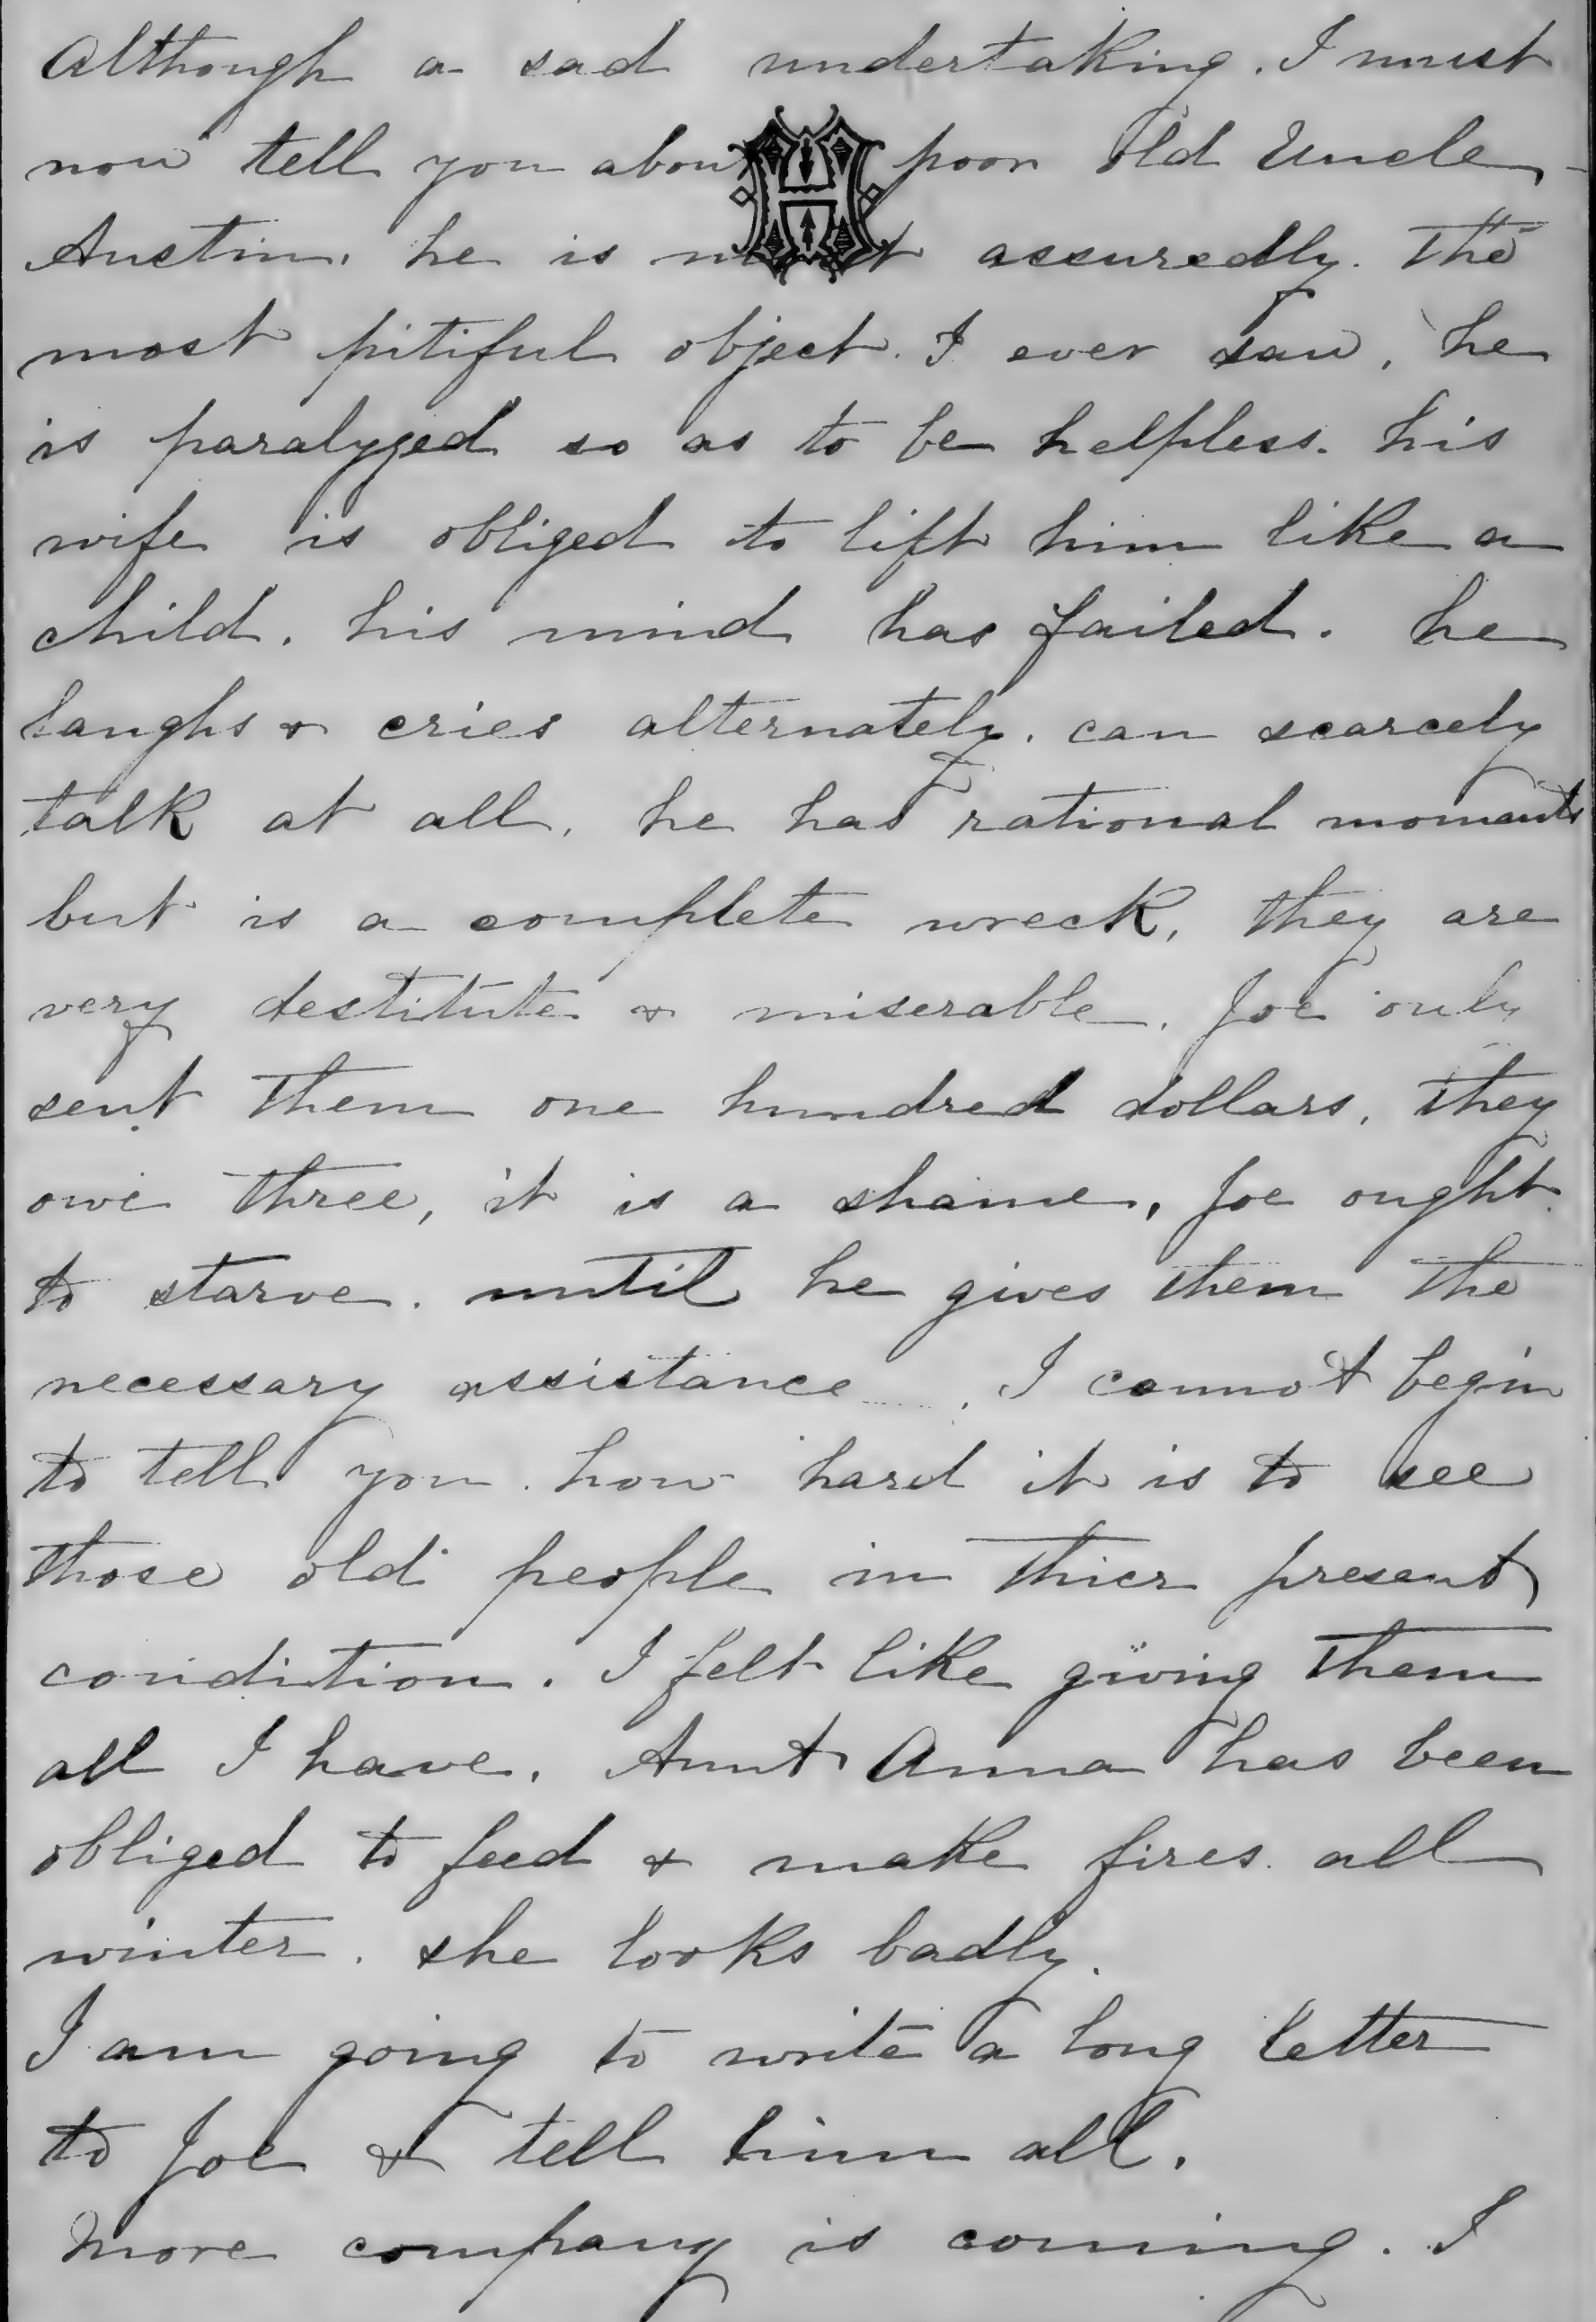 Although a sad undertaking. I must
now tell you about poor old Uncle
Austin, he is most assuredly. the
most pitiful object. I ever saw, he
is paralyzed so as to be helpless. his
wife is obliged to lift him like a
child. his mind has failed. he
laughs & cries alternately. can scarcely
talk at all, he has rational moments
but is a complete wreck, they are
very destitute & miserable. Joe only
sent them one hundred dollars, they
owe three, it is a shame, Joe ought
to starve. until he gives them the
necessary assistance. I cannot begin
to tell you. how hard it is to see
those old people in thier present
condition. I felt like giving them
all I have. Aunt Anna has been
obliged to feed & make fires all
winter. she looks badly.
I am going to write a long letter
to Joe & tell him all.
More company is coming. I